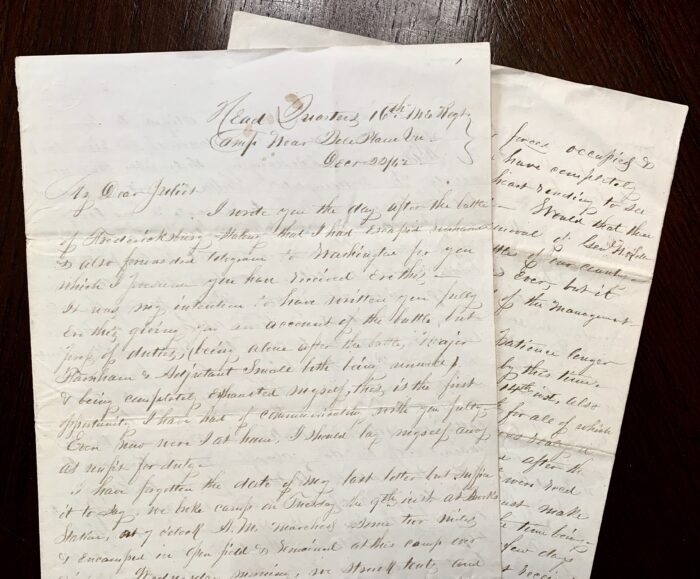 1
Head Quarters 16th Me Regt
Camp Near Belle Plain Va
Decr 22/62
My Dear Juliet
I wrote you the day after the battle
of Fredericksburg stating that I had escaped unharmed
& also forwarded telegram to Washington for you
which I presume you have received ere this –
It was my intention to have written you fully
ere this giving you an account of the battle, but
press of duties, (being alone after the battle, Major
Farnham & Adjutant Small both being unwell)
& being completely exhausted myself, this is the first
opportunity I have had of communicating with you fully.
Even now were I at home, I should lay myself away
as unfit for duty –
I have forgotten the date of my last letter but suffice
it to say, we broke camp on Tuesday the 9th inst at Brooks
Station, at 9 oclock A.M. marched some two miles
& encamped in open field & remained at this camp over
Wednesday morning, we struck tents, and
forces occupied &
have completely
heart rending to see
Would that there
at Genl McClellan
of our
Ever, but it
of the management
Patience longer
by this time
14th inst, also
for all of which
after the
were recd
must make
time being
few days